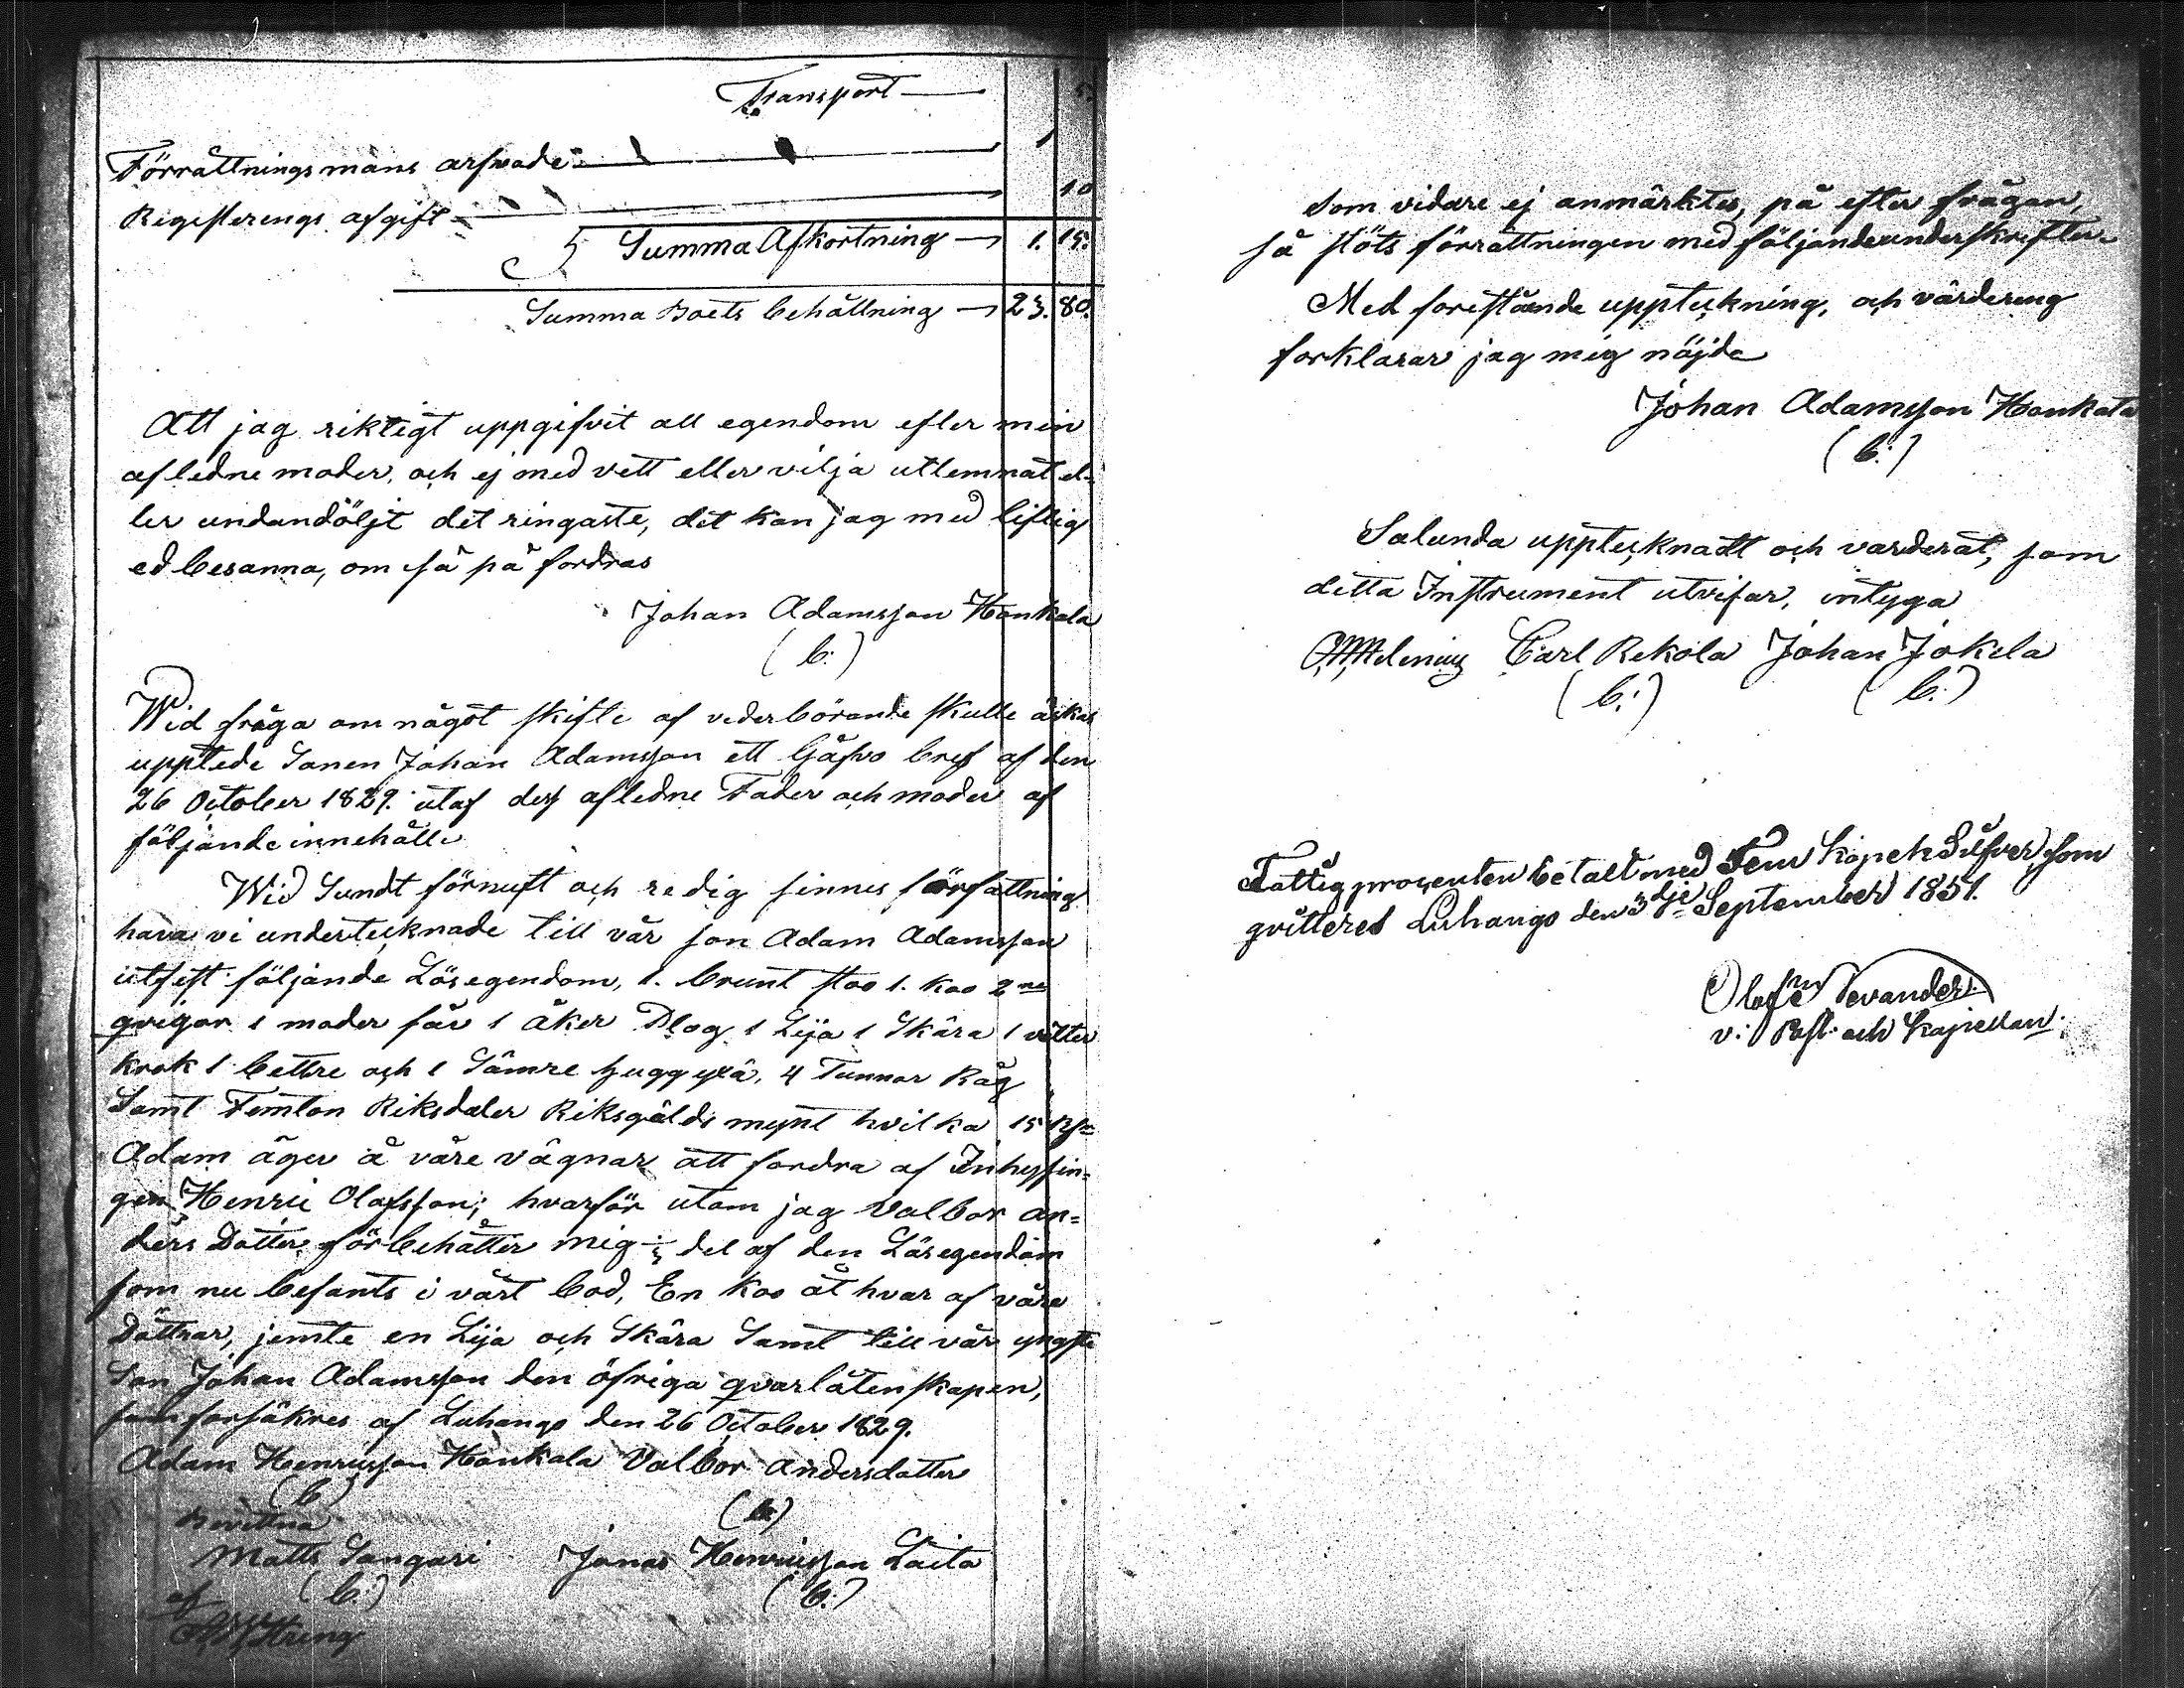 Transport — 5.
Förrättnings mäns arfvode — 1
Registerings afgift — 10
Summa Afkortning — 1. 15.
Summa Boets behållning — 23. 80.
Att jag riktigt uppgifvit all egendom efter min
aflednе moder, och ej med vett eller vilja utlemnat el-
ler undandöljt det ringaste, det kan jag med liflig
ed besanna, om så på fordras
Johan Adamsson Hankala
(b:)
Wid fråga om något skifte af vederbörande skulle äskas
upptede Sonen Johan Adamsson ett Gåfvo bref af den
26 October 1829. utaf dess afledne Fader och moder af
följande innehåll:
Wid Sundt förnuft och redig sinnes författning
hava vi undertecknade till vår son Adam Adamsson
utfest följande Lösegendom, 1. brunt stoo 1. koo 2ne
qvigor 1 moder får 1 åker Plog 1 Lija 1 Skära 1
krok 1 bettre och 1 Sämre huggyxa, 4 Tunnor Råg
Samt Femton Riksdaler Riksgälds mynt hvilka 15 R
Adam äger å våre vägnar att fordra af Inhysin-
gen Henric Olofsson; hvarför utom jag Valbor An-
ders Dotter förbehåtter mig del af den Lösegendom
som nu befants i vårt bod, En koo åt hvar af våre
Döttrar, jemte en Lija och Skära Samt till vår yngste
Son Johan Adamsson den öfriga qvarlåtenskapen,
som försäkres af Luhango den 26 October 1829.
Adam Henricsson Hankala Valbor Andersdotter
(b) (b:)
Bevittna
Matts Sangari Jonas Henricsson Laita
(b:) (b:)
af
Som vidare ej anmärktes, på efter frågan,
så slöts förrättningen med följande underskrifter.
Med forestående uppteckning, och värdering
forklarar jag mig nöjde
Johan Adamsson Hankala
(b:)
Salunda upptecknadt och varderat, som
detta Instrument utvisar, intyga
Carl Rekola Johan Jokela
(b:) (b:)
Fattigprocenten betalt med Fem kopek Silfver, som
qvitteres Luhango den 3dje September 1851.
Olof
v: Past. och kapellan.